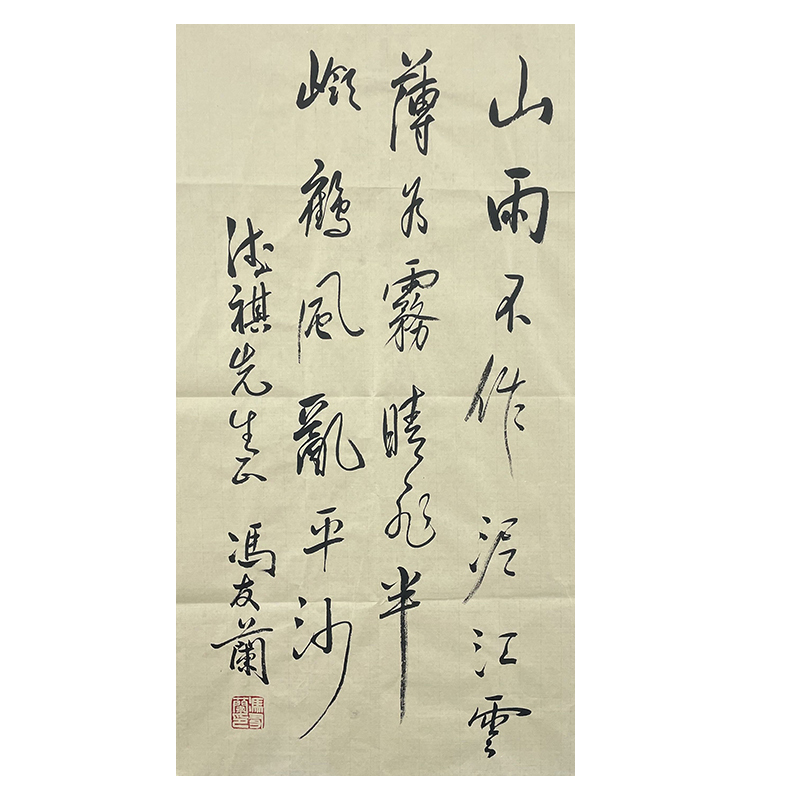 山雨不作泥江雲
薄為霧晴飛半
嶺鶴風亂平沙
祺先生正 馮友蘭
馮友蘭印